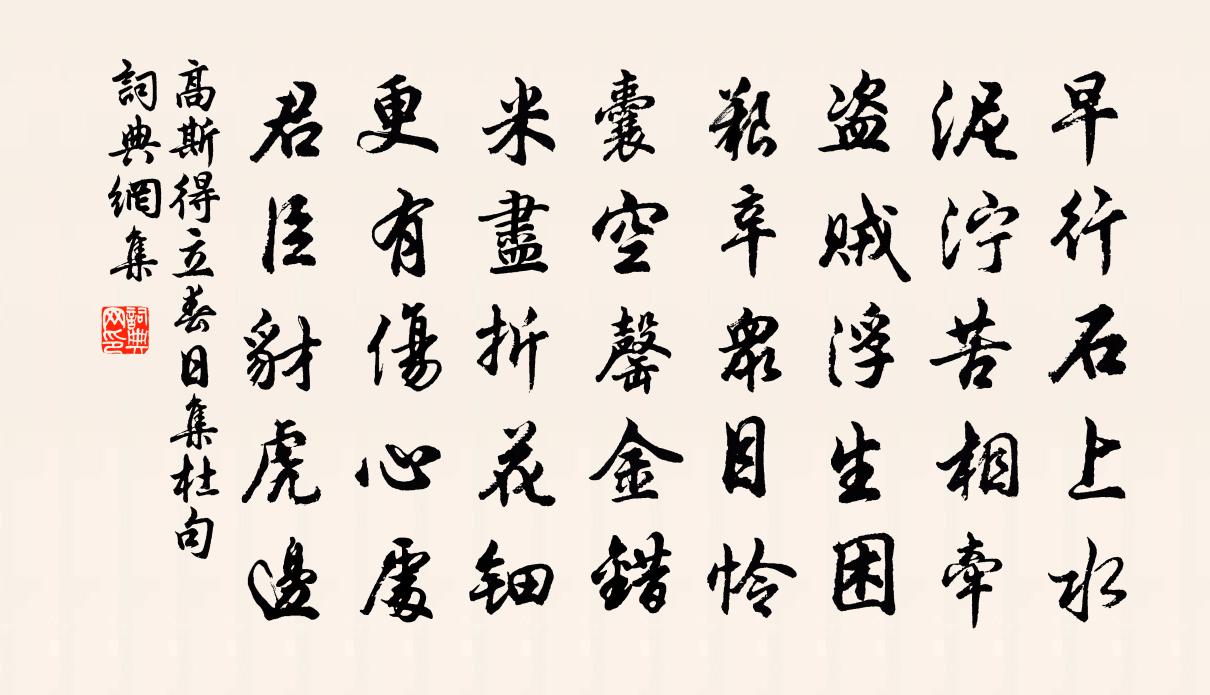 早行石上水
泥泞苦相牽
盗賊浮生困
艱辛衆目怜
囊空罄金錯
米盡折花鈿
更有傷心處
君臣豺虎邊
高斯得立春日集杜句
詞典網集
詞典网印